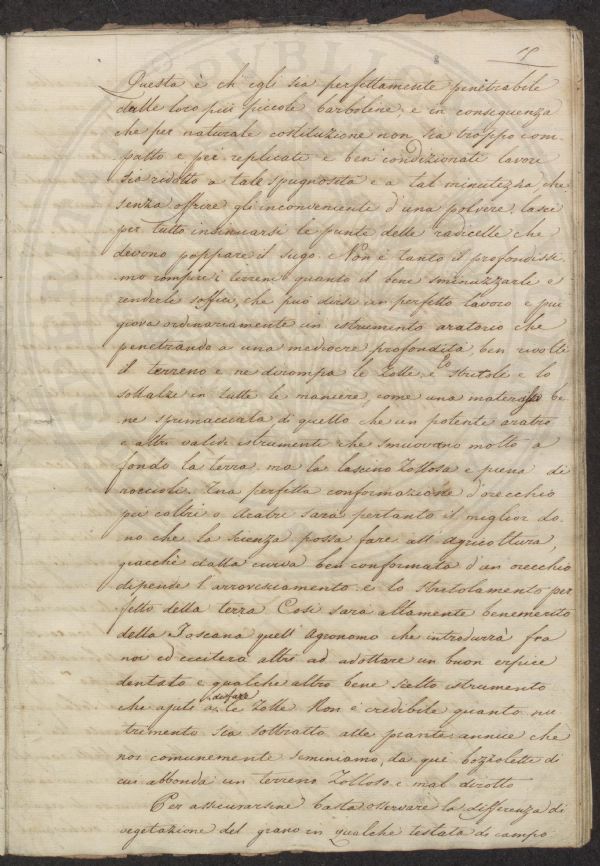 5
8
Questa è ch' egli sia perfettamente penetrabile
dalle loro più piccole barboline, e in conseguenza
che per naturale costituzione non sia troppo com-
patto e per replicate e ben condizionate lavore
sia ridotto a tale spugnosità e a tal minutezza che
senza offrire gl'inconvenienti d'una polvere, lasci
per tutto insinuarsi le punte delle radicelle che
devono poppare il sugo. Non è tanto il profondissi-
mo rompere i terreni quanto il bene sminuzzarli e
renderli soffici, che può dirsi un perfetto lavoro e più
giova ordinariamente un istrumento aratorio che
penetrando a una mediocre profondità, ben rivolti
il terreno e ne dirompa le Zolle, e lo stritoli e lo
sottalzi in tutte le maniere, come una materassa be-
ne sprimacciata di quello che un potente aratro
e altri validi istrumenti che smuovano molto a
fondo la terra, ma la lascino Zollosa e piena di
roccioli. Una perfetta conformazione d'orecchio
pei coltri o Aratri sarà pertanto il miglior do-
no che la scienza possa fare all'Agricoltura,
giacchè dalla curva ben conformata d'un orecchio
dipende l'arrovesciamento e lo stritolamento per-
fetto della terra Così sarà altamente benemerito
della Toscana quell' Agronomo che introdurrà fra
noi ed ecciterà altri ad adottare un buon erpice
dentato e qualche altro bene scelto istrumento
disfare
che ajuti a le Zolle Non è credibile quanto nu-
trimento sia sottratto alle piante annue che
noi comunemente seminiamo, da que' bozzolette di
cui abbonda un terreno Zolloso e mal dirotto
Per assicurarsene basta osservare la differenza di
vegetazione del grano in qualche testata di campo